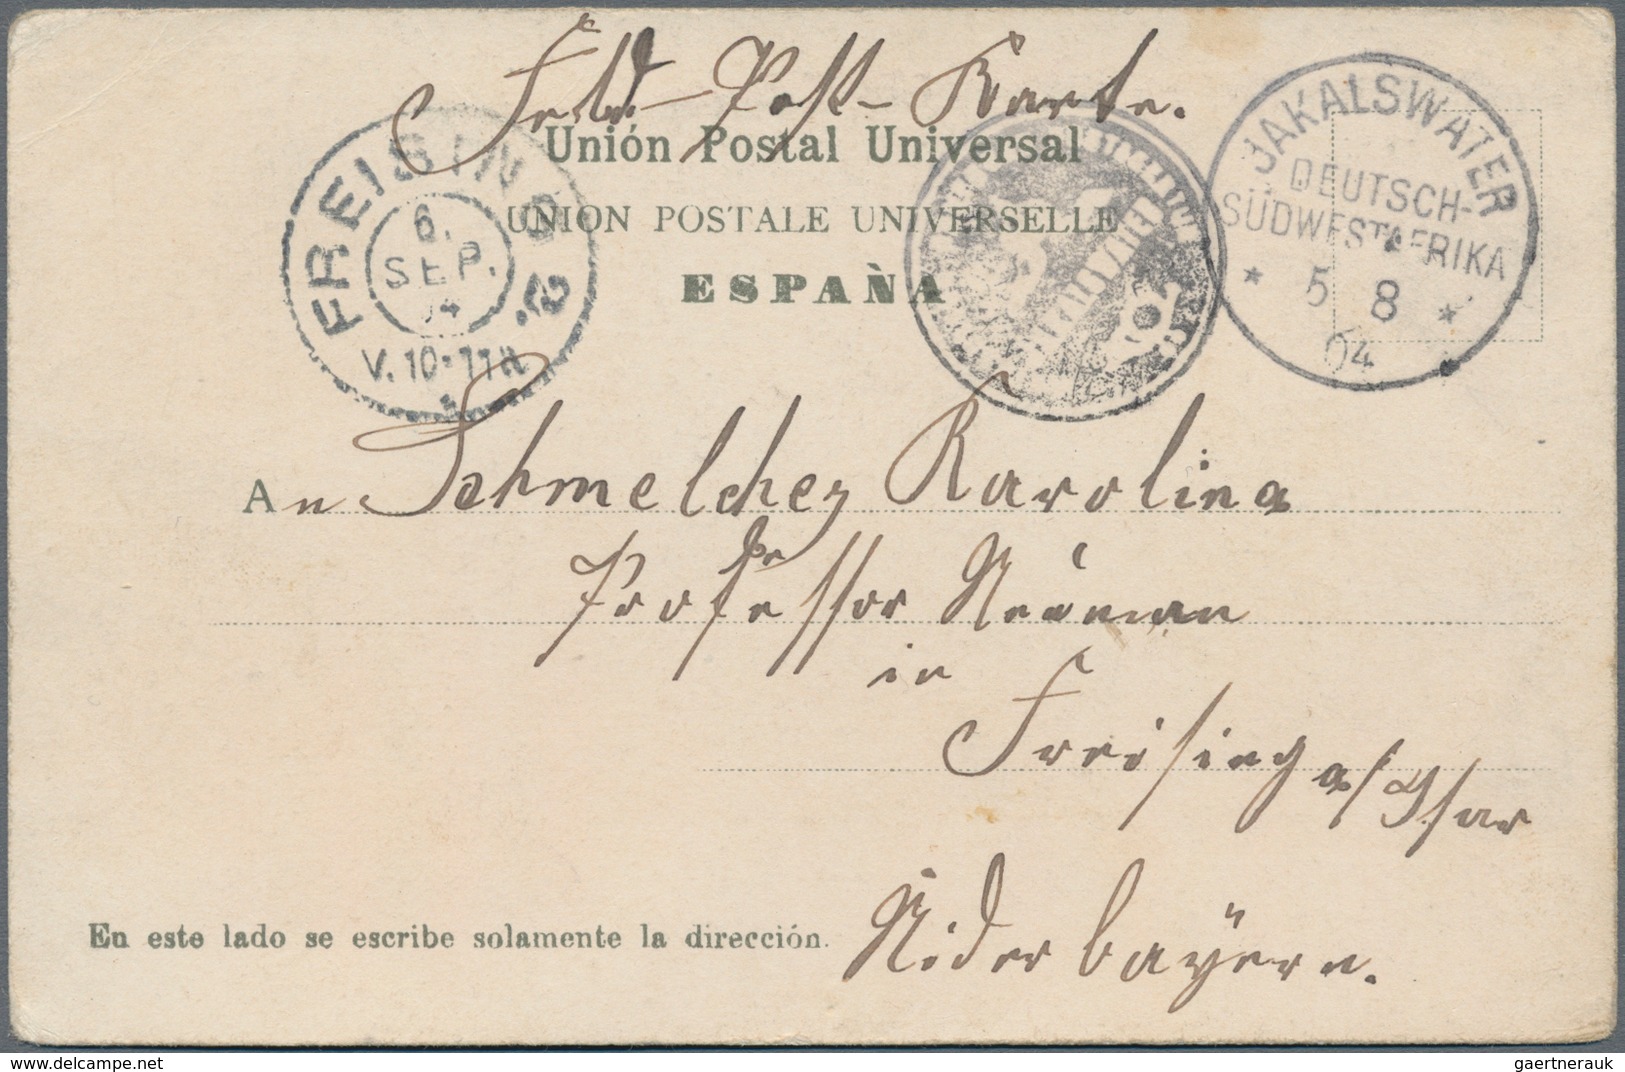 Feld-Post-Karte.
Unión Postal Universal
UNION POSTALE UNIVERSELLE
ESPAÑA
FREISING 2.
6.
SEP.
04
V.10-11
JAKALSWATER
DEUTSCH-
SÜDWESTAFRIKA
* 5 8 *
04
An Schmelcher Karolina
Professor Neüman
in
Freising a/Isar
Niderbayern.
En este lado se escribe solamente la dirección.
www.delcampe.net
gaertnerauk